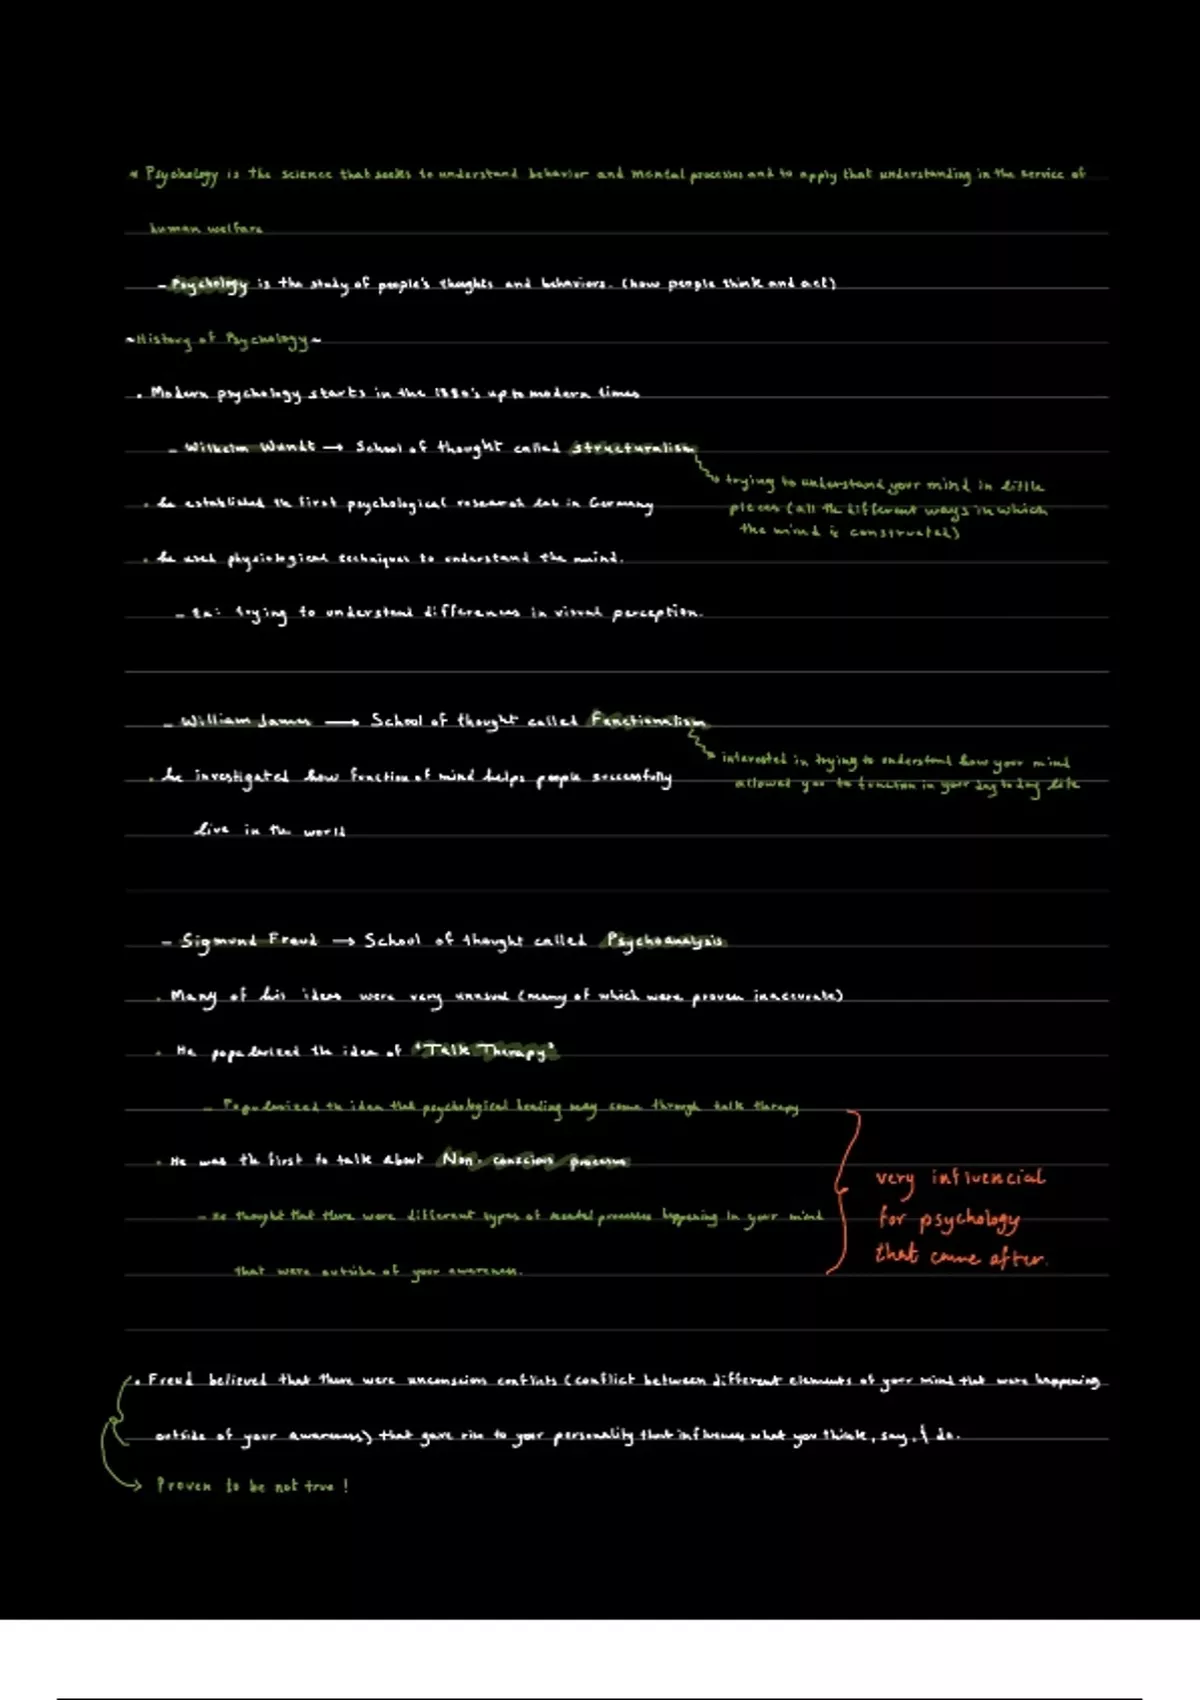 * Psychology is the science that seeks to understand behavior and mental processes and to apply that understanding in the service of
human welfare
- Psychology is the study of people's thoughts and behaviors. (how people think and act)
~History of Psychology~
• Modern psychology starts in the 1880's up to modern times
- Wilhelm Wundt → School of thought called structuralism
trying to understand your mind in little
pieces (all the different ways in which
the mind is constructed)
• he established the first psychological research lab in Germany
• he used physiological techniques to understand the mind.
- Ex: trying to understand differences in visual perception.
- William James → School of thought called Functionalism
interested in trying to understand how your mind
allowed you to function in your day to day life
• he investigated how function of mind helps people successfully
live in the world
- Sigmund Freud → School of thought called Psychoanalysis
• Many of his ideas were very unusual (many of which were proven inaccurate)
• He popularized the idea of "Talk Therapy"
- Popularized the idea that psychological healing may come through talk therapy
• He was the first to talk about Non-conscious processes
- He thought that there were different types of mental processes happening in your mind
that were outside of your awareness.
very influencial
for psychology
that came after.
• Freud believed that there were unconscious conflicts (conflict between different elements of your mind that were happening
outside of your awareness) that gave rise to your personality that influences what you think, say, & do.
→ Proven to be not true!